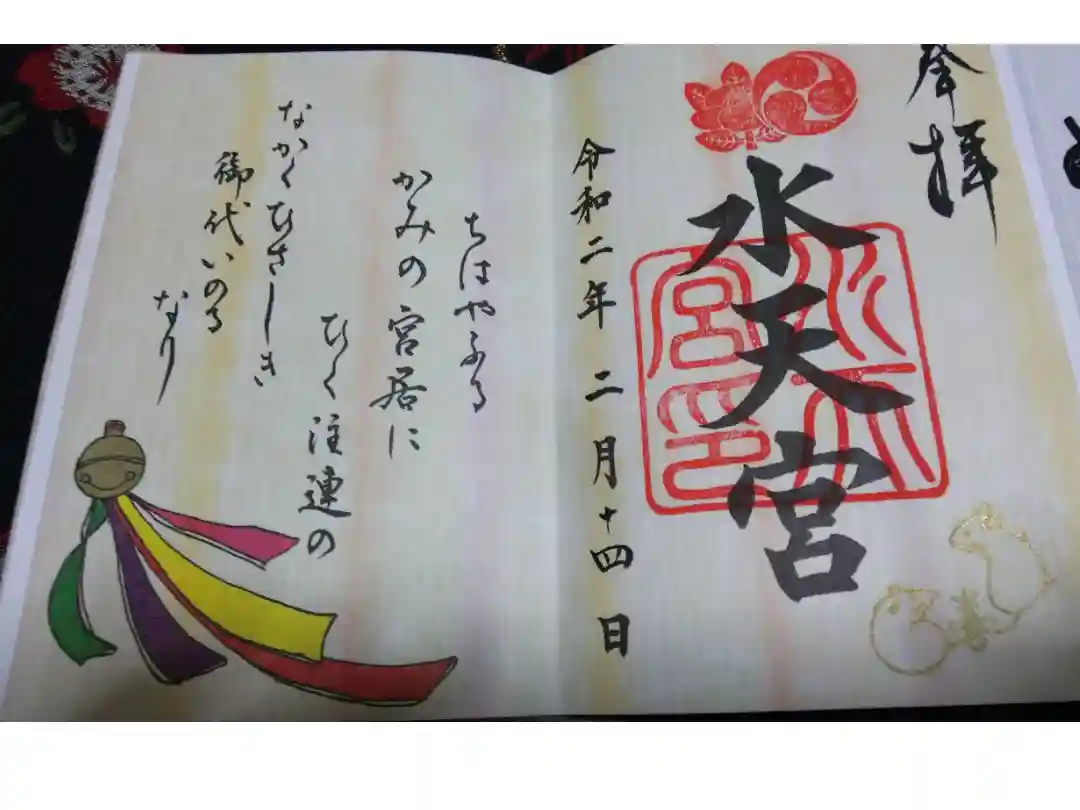 参拝
水天宮
令和二年 二月十四日
ちはやふる
かみの宮居に
ひく注連の
なかくひさしき
御代いのる
なり